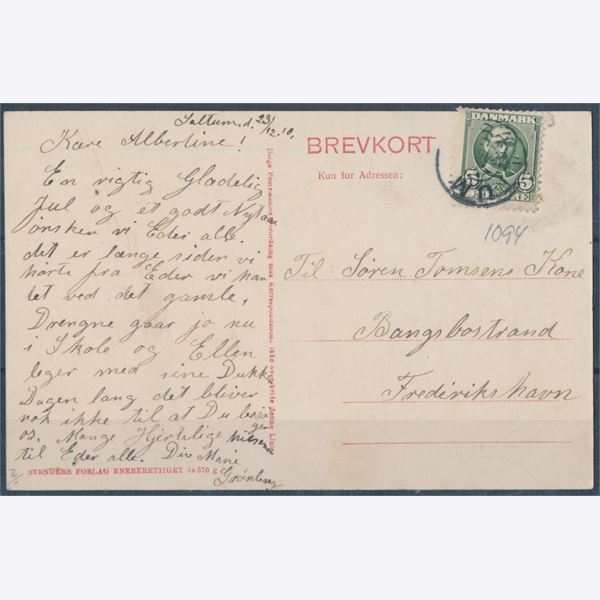 Saltum d. 23/12.10.
Kære Albertine!
En rigtig Glædelig
Jul og et godt Nytaar
ønsken vi Eder alle.
det er længe siden vi
hørte fra Eder vi kan
let ved det gamle,
Drengne gaar jo nu
i Skole og Ellen
leger med sine Dukker
Dagen lang det bliver
nok ikke til at Du besø
ger
os. Mange Hjertelige Hilsener
til Eder alle. Din Marie
Grønberg
STENDERS FORLAG ENEBERETTIGET 14 570 E
2/
Ifølge Postvæsenets Forordning maa Korrespondancen ikke overskride denne Linie
BREVKORT
Kun for Adressen:
DANMARK
5 5
ØRE
1094
Til Søren Tomsens Kone
Bangsbostrand
Frederikshavn